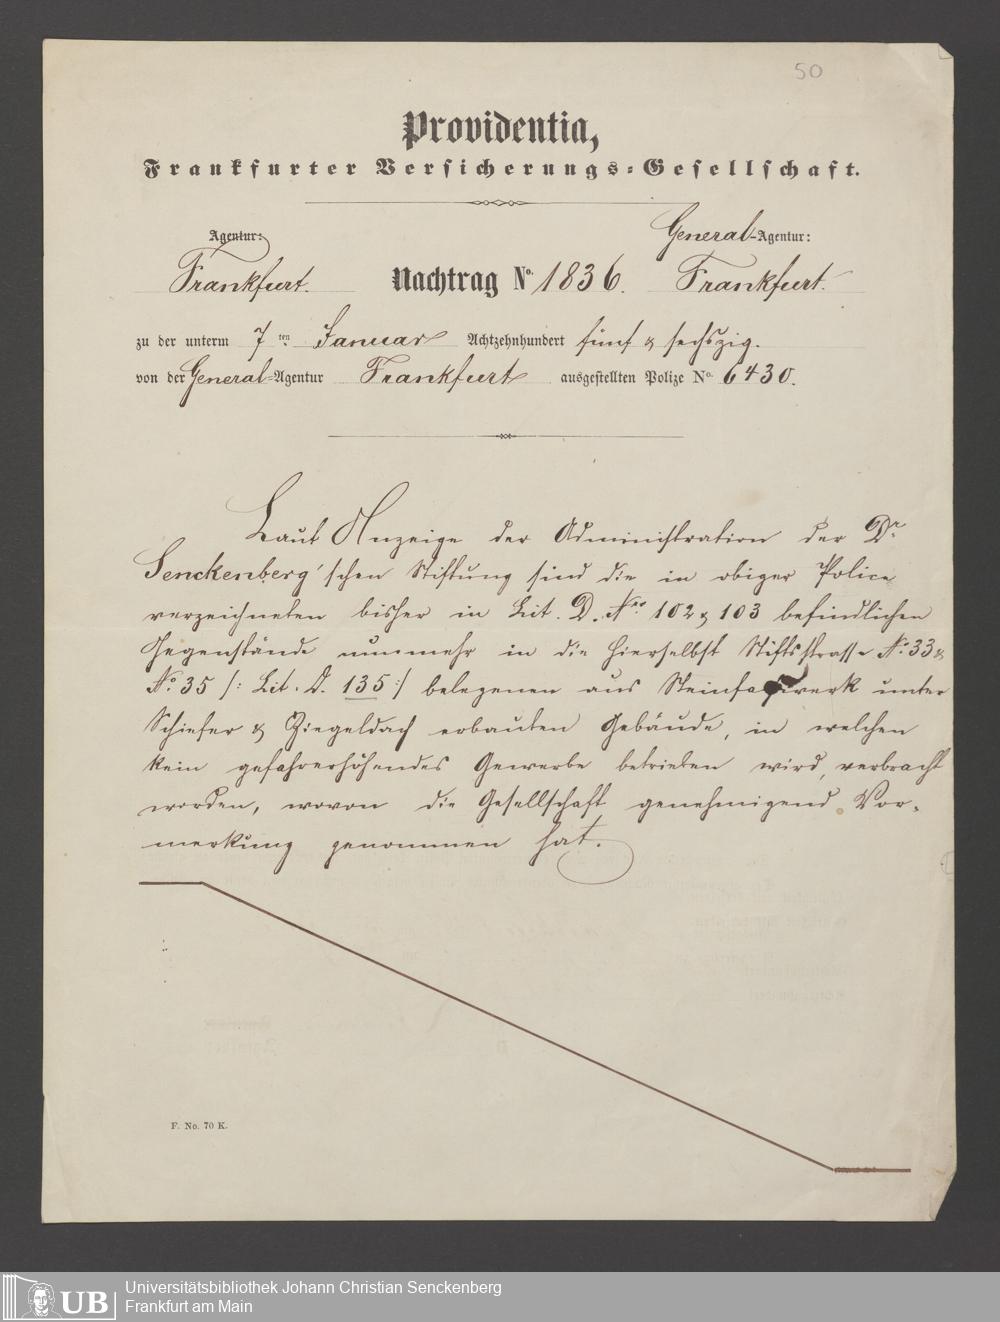 50
Providentia,
Frankfurter Versicherungs-Gesellschaft.
Agentur: General-Agentur:
Frankfurt. Nachtrag No. 1836. Frankfurt.
zu der unterm 7ten Januar Achtzehnhundert fünf & sechszig.
von der General-Agentur Frankfurt ausgestellten Polize No. 6430.
Laut Anzeige der Administration der Dr.
Senckenberg'schen Stiftung sind die in obiger Police
verzeichneten bisher in Lit. D. No. 102 & 103 befindlichen
Gegenstände nunmehr in die hierselbst Stiftsstrasse No. 33 &
No. 35 /: Lit. D. 135 :/ belegenen aus Steinfachwerk unter
Schiefer & Ziegeldach erbauten Gebäude, in welchen
kein gefahrerhöhendes Gewerbe betrieben wird, verbracht
worden, wovon die Gesellschaft genehmigend Vor-
merkung genommen hat.
F. No. 70 K.
UB
Universitätsbibliothek Johann Christian Senckenberg
Frankfurt am Main